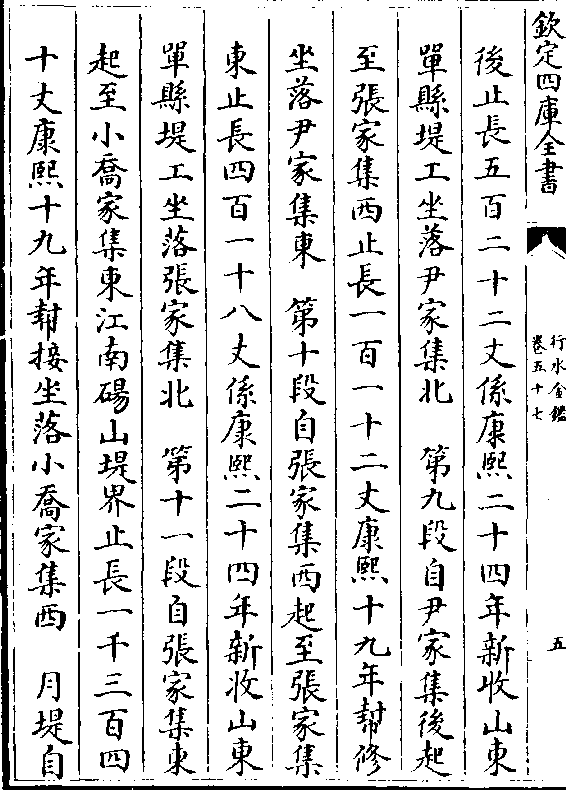 欽定四庫全書
行水金鑑
卷五十七
五
後止長五百二十二丈係康熙二十四年新收山東
單縣堤工坐落尹家集北　第九段自尹家集後起
至張家集西止長一百一十二丈康熙十九年幇修
坐落尹家集東　第十段自張家集西起至張家集
東止長四百一十八丈係康熙二十四年新收山東
單縣堤工坐落張家集北　第十一段自張家集東
起至小喬家集東江南碭山堤界止長一千三百四
十丈康熙十九年幇接坐落小喬家集西　月堤自